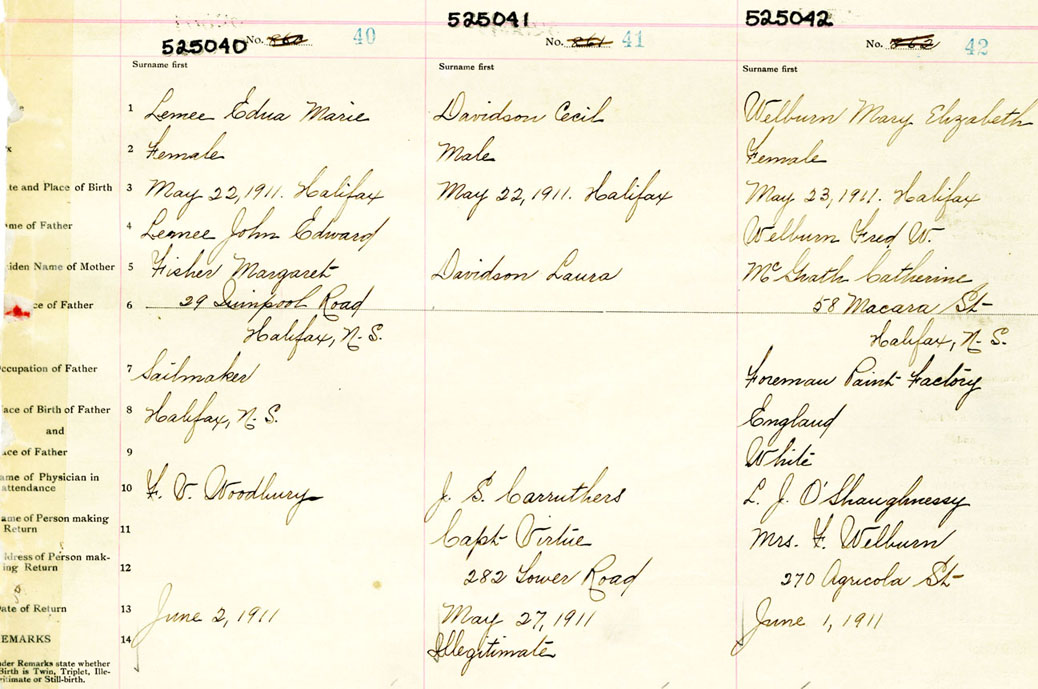 525040 No. 860 40
525041 No. 861 41
525042 No. 862 42
Surname first Surname first Surname first
1 Lemee Edna Marie Davidson Cecil Welburn Mary Elizabeth
x 2 Female Male Female
te and Place of Birth 3 May 22, 1911. Halifax May 22, 1911. Halifax May 23, 1911. Halifax
me of Father 4 Lemee John Edward Welburn Fred W.
iden Name of Mother 5 Fisher Margaret Davidson Laura McGrath Catherine
ce of Father 6 29 Quinpool Road 58 Macara St
Halifax, N.S. Halifax, N.S.
ccupation of Father 7 Sailmaker Foreman Paint Factory
ace of Birth of Father 8 Halifax, N.S. England
and
ace of Father 9 White
ame of Physician in
attendance 10 F. V. Woodbury J. S. Carruthers L. J. O'Shaughnessy
ame of Person making
Return 11 Capt Virtue Mrs. F. Welburn
ddress of Person mak-
ing Return 12 282 Tower Road 270 Agricola St
ate of Return 13 June 2, 1911 May 27, 1911 June 1, 1911
EMARKS 14 Illegitimate
nder Remarks state whether
Birth is Twin, Triplet, Ille-
gitimate or Still-birth.